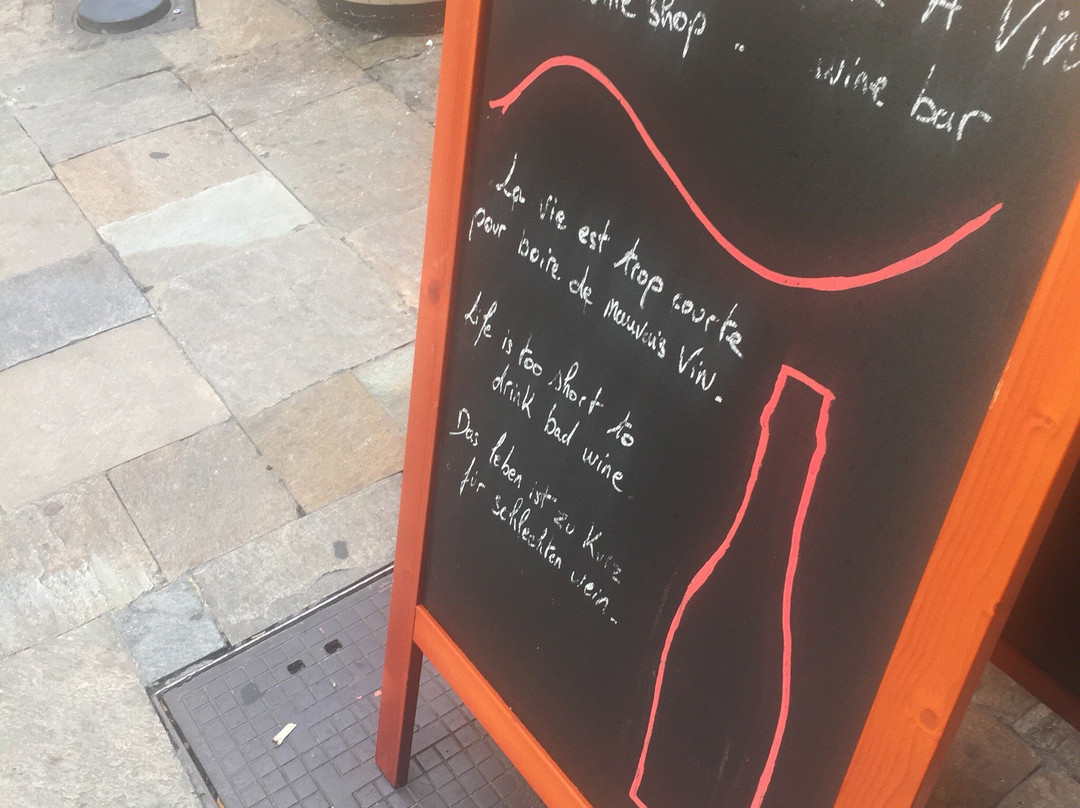 A Vin
shop . wine bar
La vie est trop courte
pour boire de mauvais Vin.
Life is too short to
drink bad wine
Das leben ist zu Kurz
für schlechten wein.